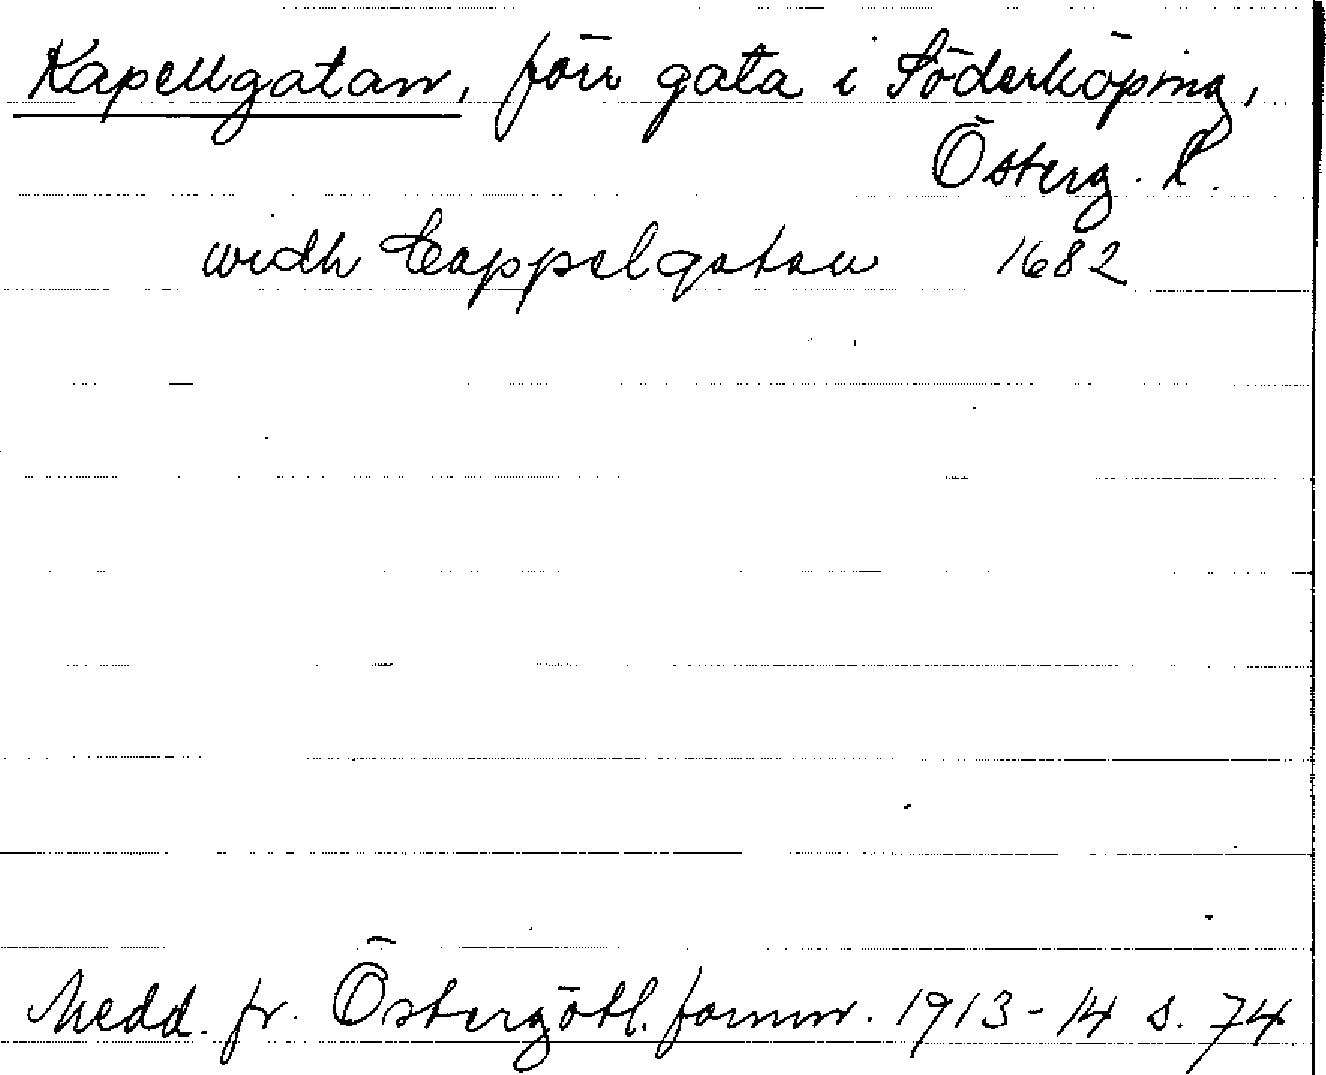 Kapellgatan, förr gata i Söderköping,
Österg. l.
widh Cappelgatan 1682
Medd. fr. Östergötl. fornm. 1913-14 s. 74